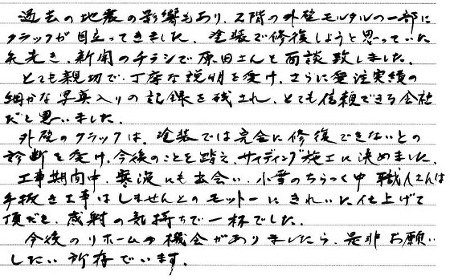 過去の地震の影響もあり、2階の外壁モルタルの一部に
クラックが目立ってきました。塗装で修復しようと思っていた
矢先き、新聞のチラシで原田さんと面談致しました。
とても親切で、丁寧な説明を受け、さらに受注実績の
細かな写真入りの記録を残され、とても信頼できる会社
だと思いました。
外壁のクラックは、塗装では完全に修復できないとの
診断を受け、今後のことを踏え、サイディング施工に決めました。
工事期間中、寒波にも出会い、小雪のちらつく中 職人さんは
手抜き工事はしませんとのモットーに、きれいに仕上げて
頂だき、感謝の気持ちで一杯でした。
今後のリホームの機会がありましたら、是非お願い
したい所存でいます。